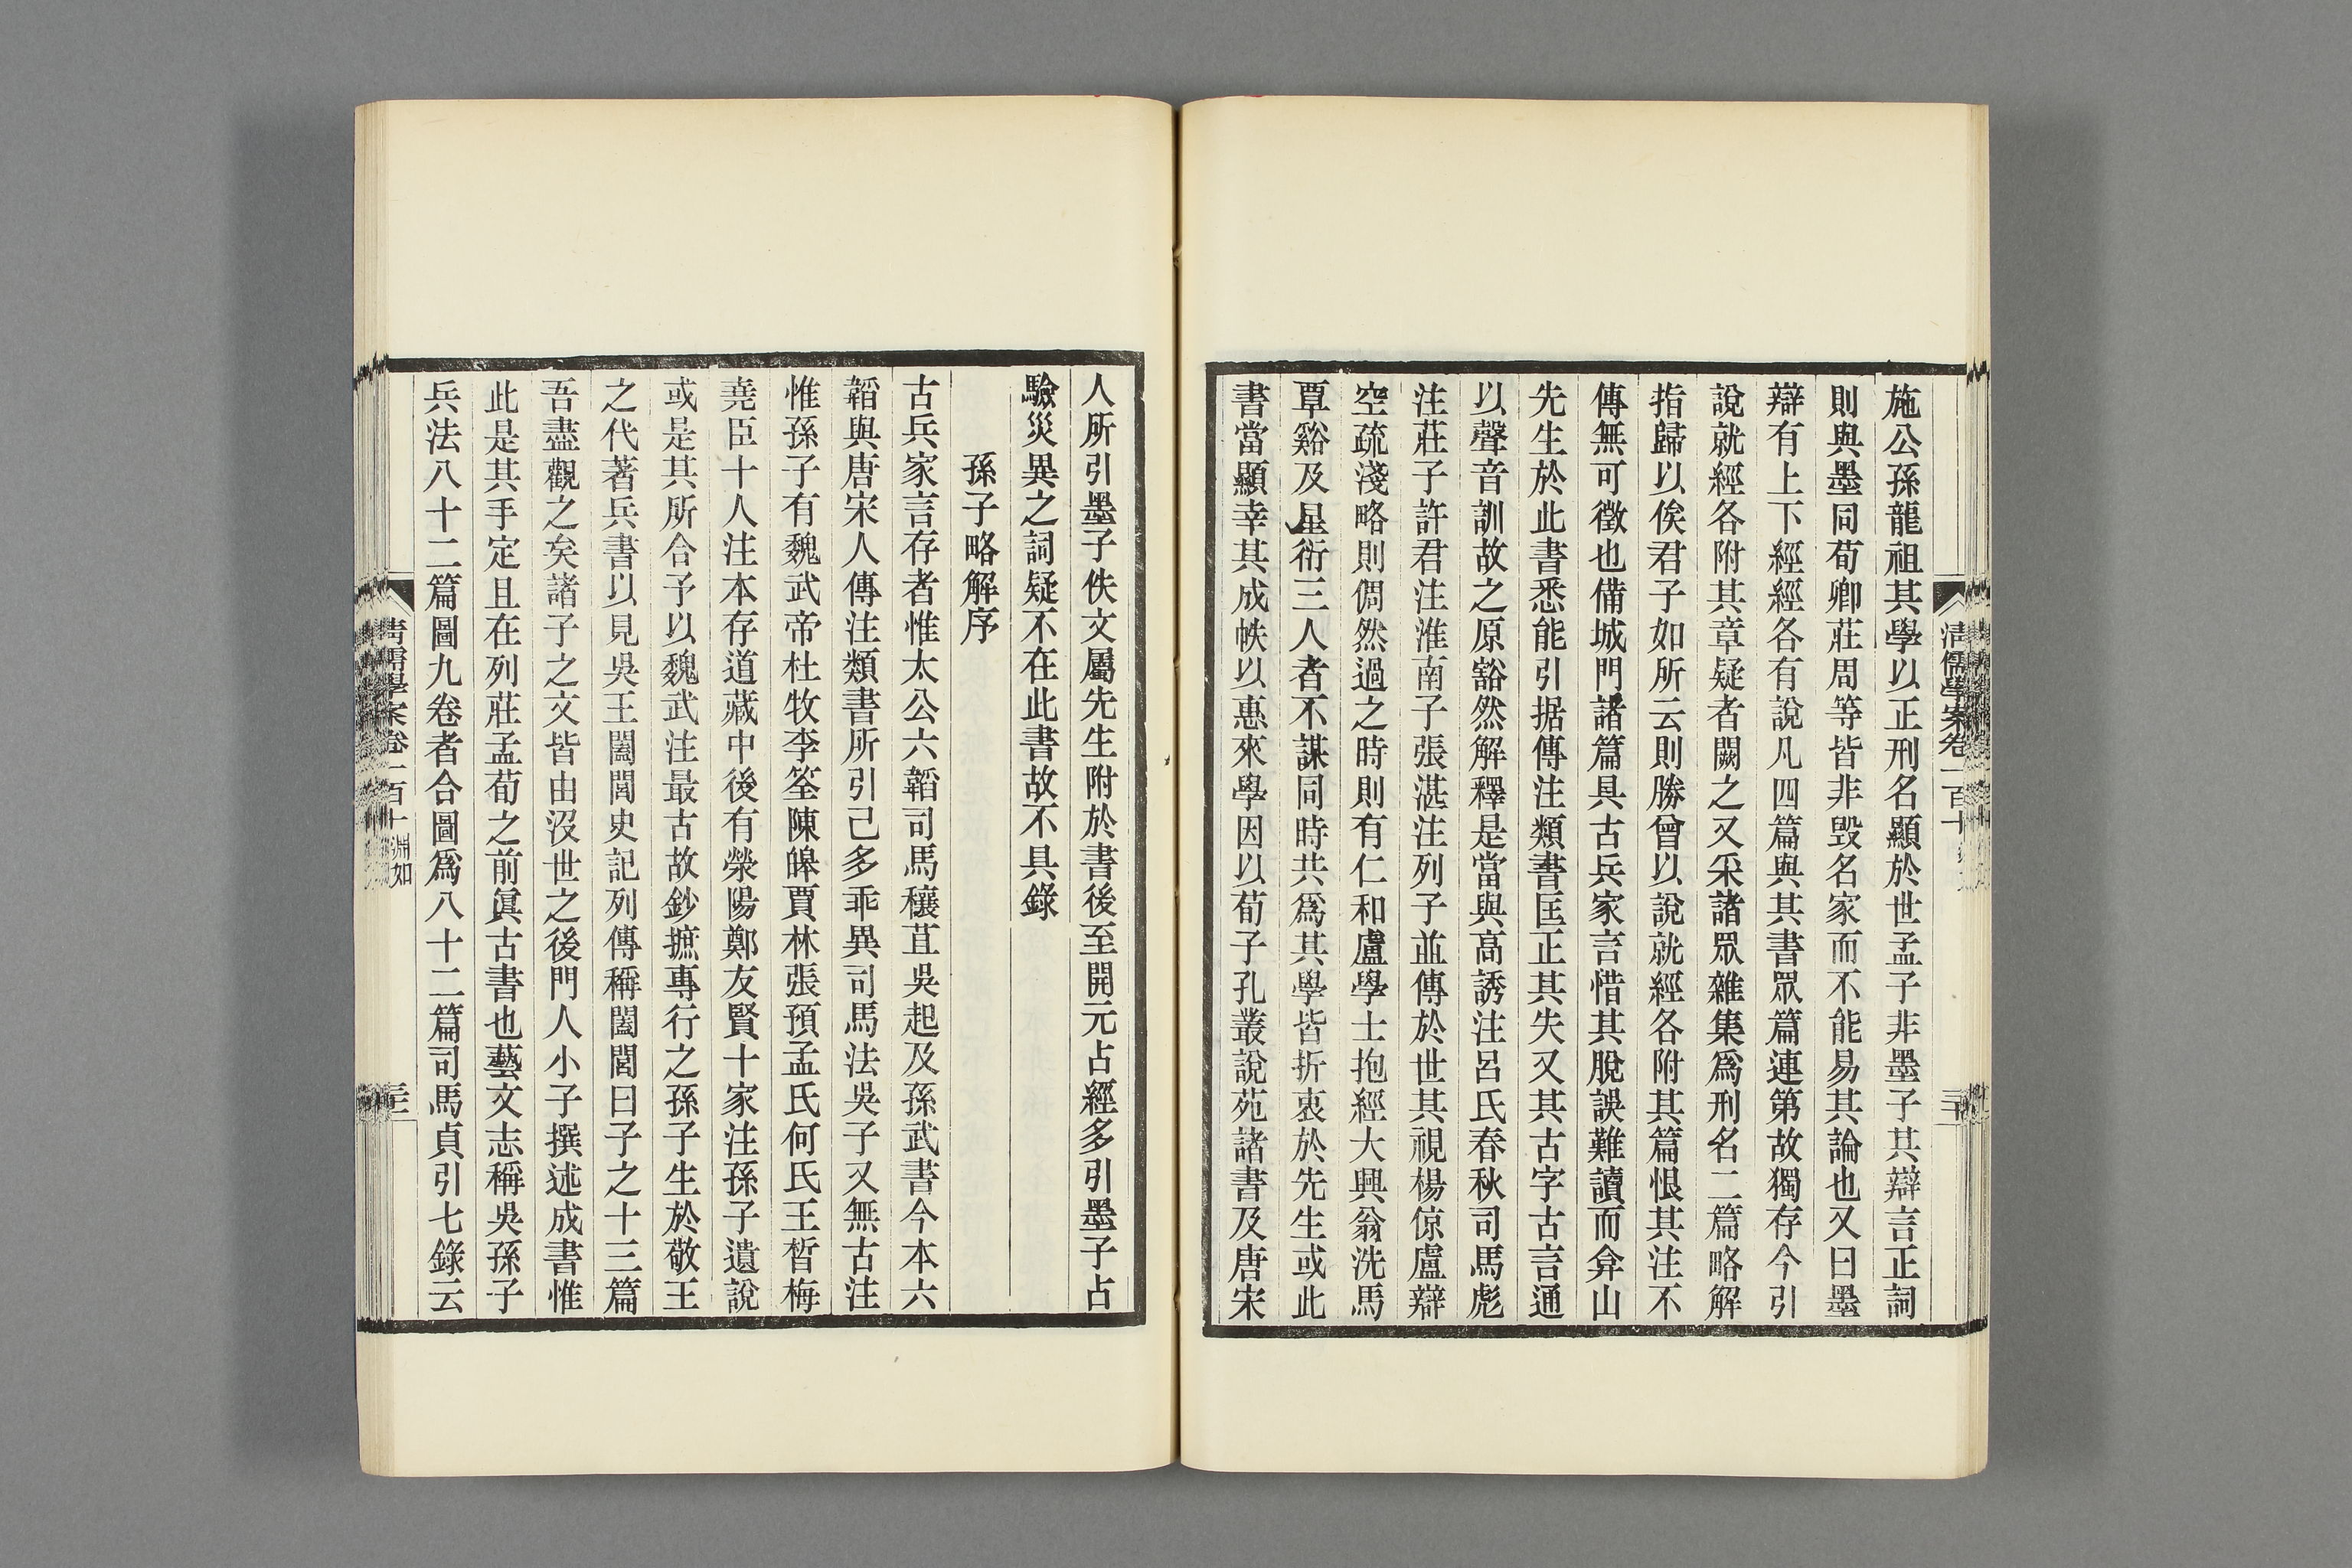 清儒學案卷一百十
三十
施公孫龍祖其學以正刑名顯於世孟子非墨子其辯言正詞
則與墨同荀卿莊周等皆非毀名家而不能易其論也又曰墨
辯有上下經經各有說凡四篇與其書眾篇連第故獨存今引
說就經各附其章疑者闕之又采諸眾雜集爲刑名二篇略解
指歸以俟君子如所云則勝曾以說就經各附其篇恨其注不
傳無可徵也備城門諸篇具古兵家言惜其脫誤難讀而弇山
先生於此書悉能引据傳注類書匡正其失又其古字古言通
以聲音訓故之原豁然解釋是當與高誘注呂氏春秋司馬彪
注莊子許君注淮南子張湛注列子並傳於世其視楊倞盧辯
空疏淺略則倜然過之時則有仁和盧學士抱經大興翁洗馬
覃谿及星衍三人者不謀同時共爲其學皆折衷於先生或此
書當顯幸其成帙以惠來學因以荀子孔叢說苑諸書及唐宋
人所引墨子佚文屬先生附於書後至開元占經多引墨子占
驗災異之詞疑不在此書故不具錄
孫子略解序
古兵家言存者惟太公六韜司馬穰苴吳起及孫武書今本六
韜與唐宋人傳注類書所引己多乖異司馬法吳子又無古注
惟孫子有魏武帝杜牧李筌陳皞賈林張預孟氏何氏王晳梅
堯臣十人注本存道藏中後有滎陽鄭友賢十家注孫子遺說
或是其所合予以魏武注最古故鈔摭專行之孫子生於敬王
之代著兵書以見吳王闔閭史記列傳稱闔閭曰子之十三篇
吾盡觀之矣諸子之文皆由沒世之後門人小子撰述成書惟
此是其手定且在列莊孟荀之前眞古書也藝文志稱吳孫子
兵法八十二篇圖九卷者合圖爲八十二篇司馬貞引七錄云
清儒學案卷一百十
淵如
三十一